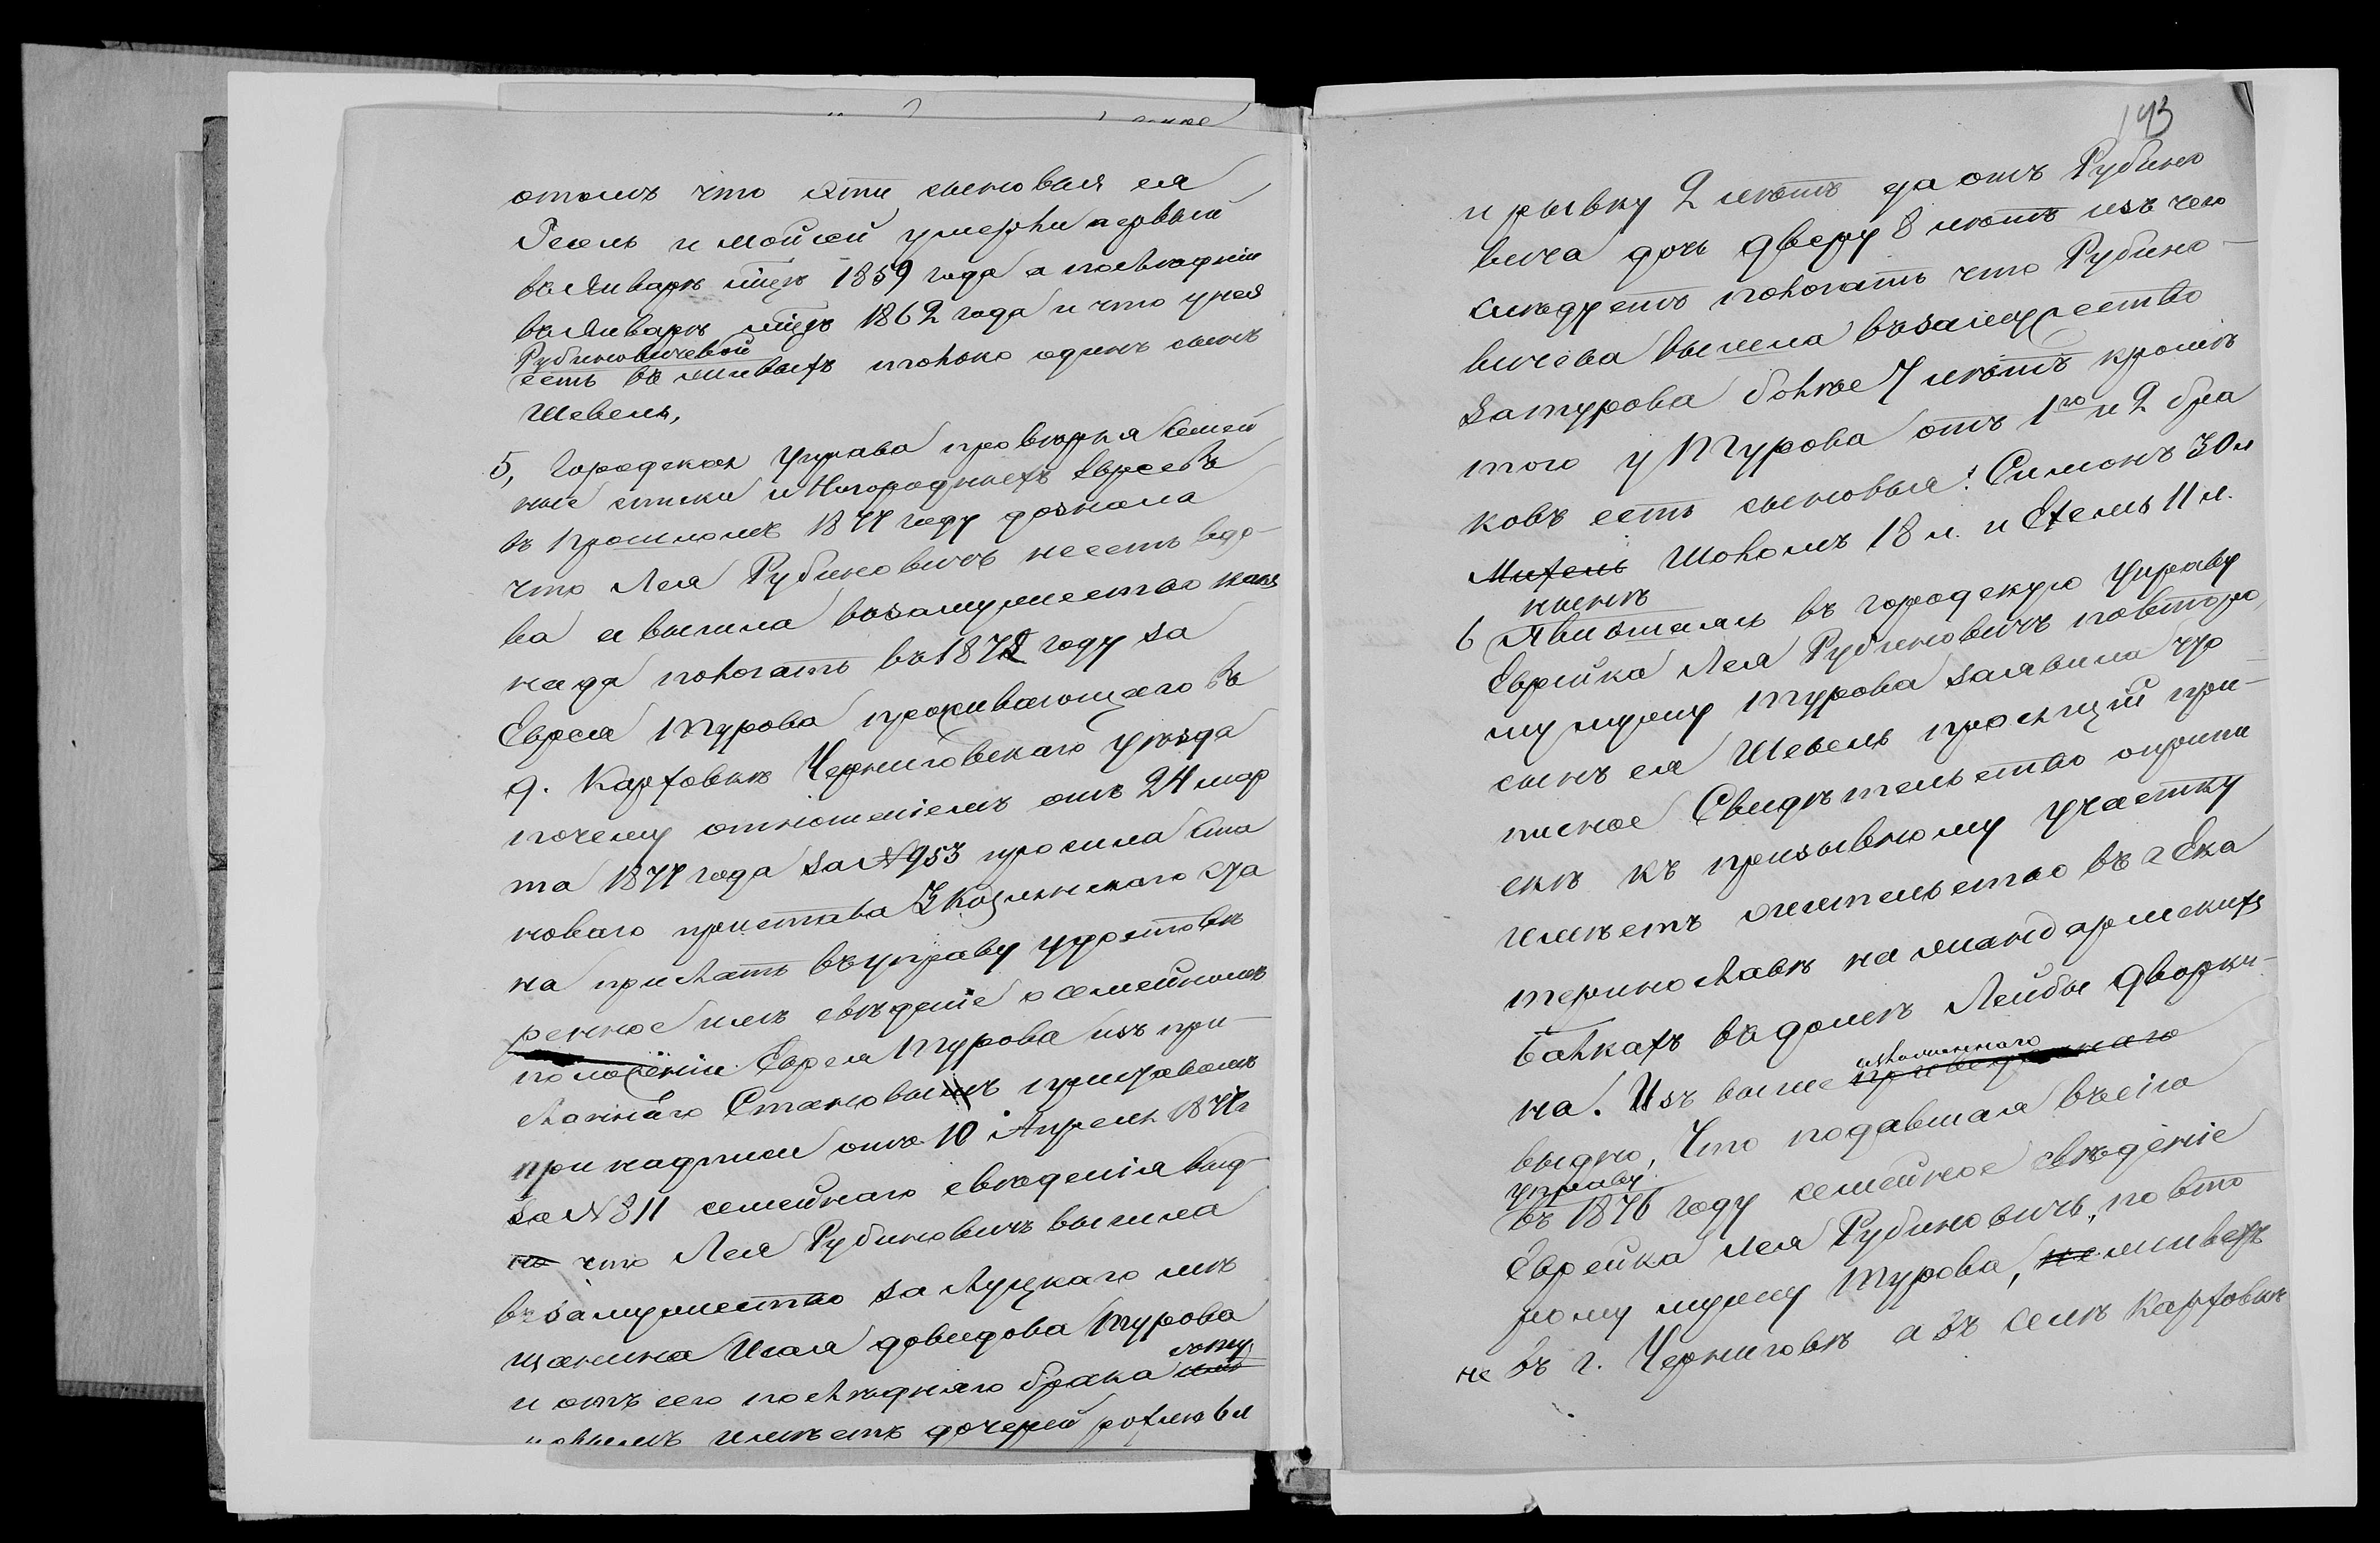 отомъ что эти сыновья ея
Гесель и Мойсей умерли первый
въ Январѣ мцѣ 1859 года а послѣдній
въ Январѣ мцѣ 1862 года и что у ней
Рубиновичевой
есть въ живыхъ только одинъ сынъ
Шевель,
5, Городская Управа провѣряя Семей
ные списки иногороднихъ Евреевъ
въ прошломъ 1877 году дознала
что Лея Рубиновичъ несть вдо-
ва а вышла възамужество какъ
нада пологать въ 1872 году за
Еврея Турова проживающаго въ
д. Карховкѣ Черниговскаго уѣзда
почему отношеніемъ отъ 24 мар
та 1877 года за № 953 просила Ста
новаго пристава 3 Козлянскаго ста
на прислать въ управу удостовѣ
ренное имъ свѣденіе о семейномъ
положеніи Еврея Турова изъ при-
сланнаго Становымъ приставомъ
при надписи отъ 10 Апреля 1877 г
за № 811 семейнаго свѣденія вид-
но что Лея Рубиновичъ вышла
възамужество за Луцкаго мѣ
щанина Исая Довидова Турова
и отъ сего послѣдняго брака
имѣетъ дочерей рохлю 6 л
193
и рывку 2 лѣтъ да отъ Рубино
вича дочь дверу 8 лѣтъ изъ чего
слѣдуетъ пологать что Рубино-
вичева вышла възамужество
за турова болѣе 7 лѣтъ кромѣ
того у Турова отъ 1го и 2 бра
ковъ есть сыновья: Симонъ 30 л
Михель Шоломъ 18 л. и Ехель 11 л.
нынѣ
6 Явившаясь въ городскую управу
Еврейка Лея Рубиновичъ повторо
му мужу Турова заявила что
сынъ ея Шевель просящій при-
писное Свидѣтельство оприпи
скѣ къ призывному участку
имѣетъ жительство въ г Ека
теринославѣ на жандармскихъ
балкахъ въ домѣ Лейбы Дворки-
на. Изъ выше
изложеннаго
видно, Что подавшая въ сію
управу
въ 1876 году семейное свѣдѣніе
Еврейка Лея Рубиновичъ, по вто
рому мужу Турова, не живетъ
не въ г. Черниговѣ а въ селѣ Карховкѣ